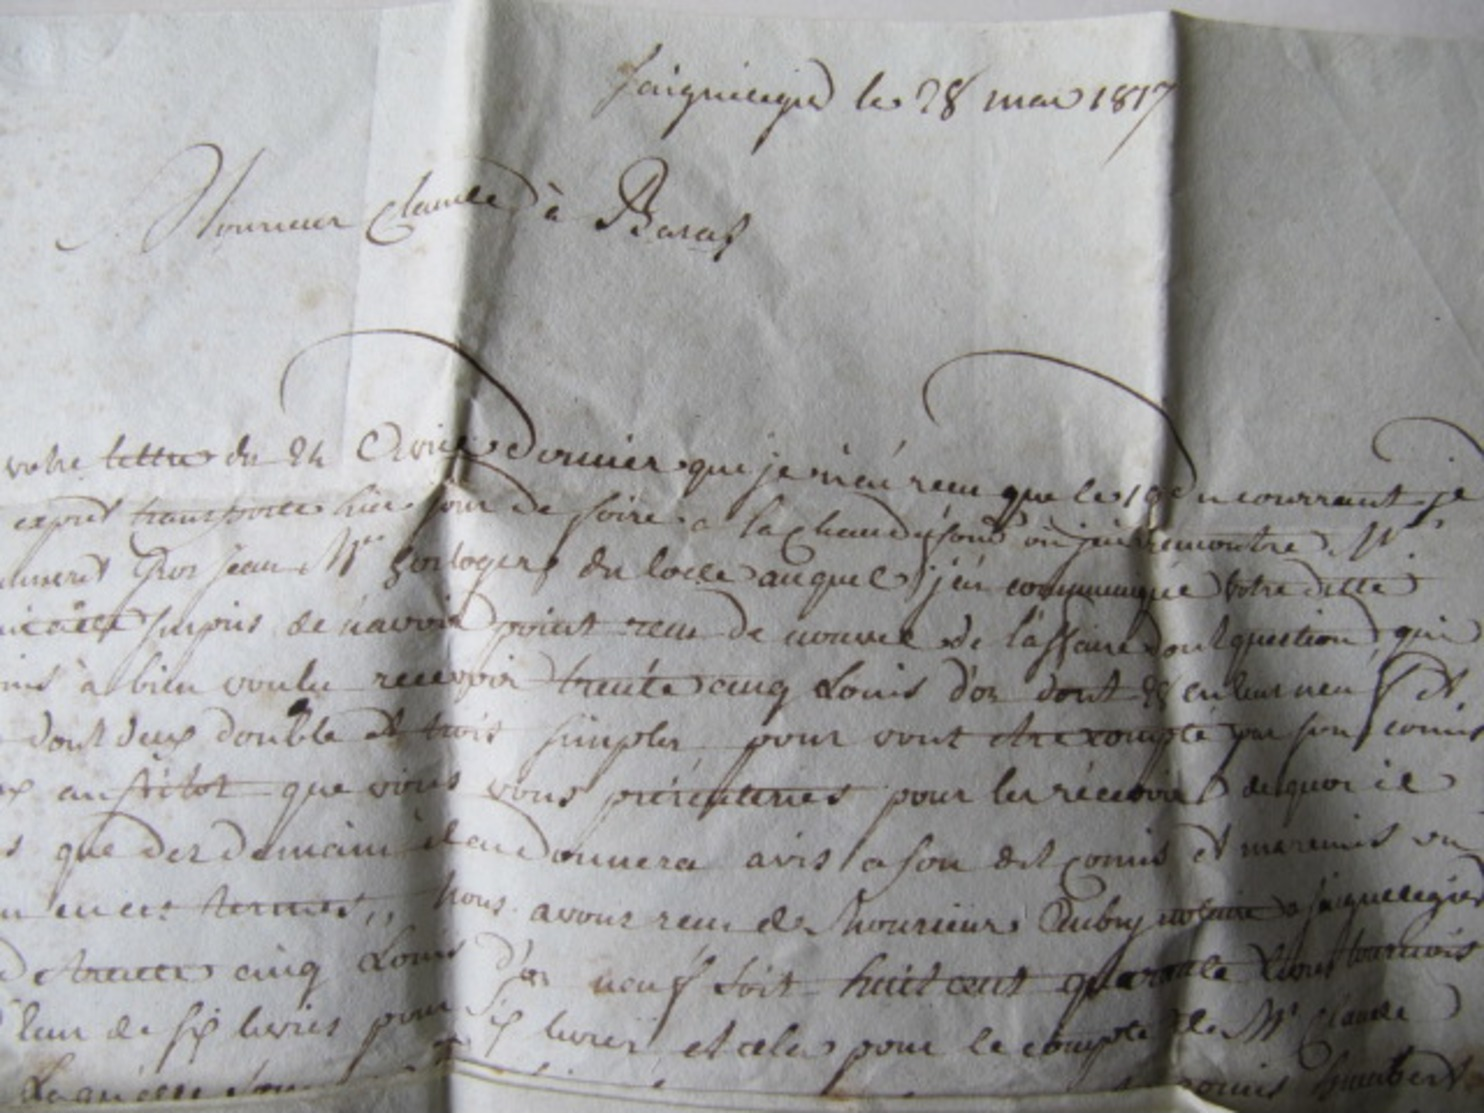 Saignelegier le 28 mai 1817
Monsieur Claude à Baras
votre lettre du 24 Avril dernier que je n'ai recu que le 19 du courrant je
exprès transporté hier jour de foire a la Chaudefond où j'ai rencontre Mr
Gros Jean Mre horloger du locle auquel j'ai communiqué votre ditte
surpris de n'avoir point recu de nouvel de l'affaire dont question qui
à bien voulu recevoir trente cinq Louis d'or dont 28 en
dont deux double et trois simples pour vous etre compté par son comis
au que vous vous présenteries pour les récevoir de quoi il
que des demain il en donnera avis a son dit comis et m'a remis un
en ces termes,, Nous avons recu de Monsieur Aubry notaire a saignelegier
trente cinq Louis d'or neuf soit huit cent quarante Livres tournois
de six livres pour six livres et cela pour le compte de Mr Claude
comis humbert